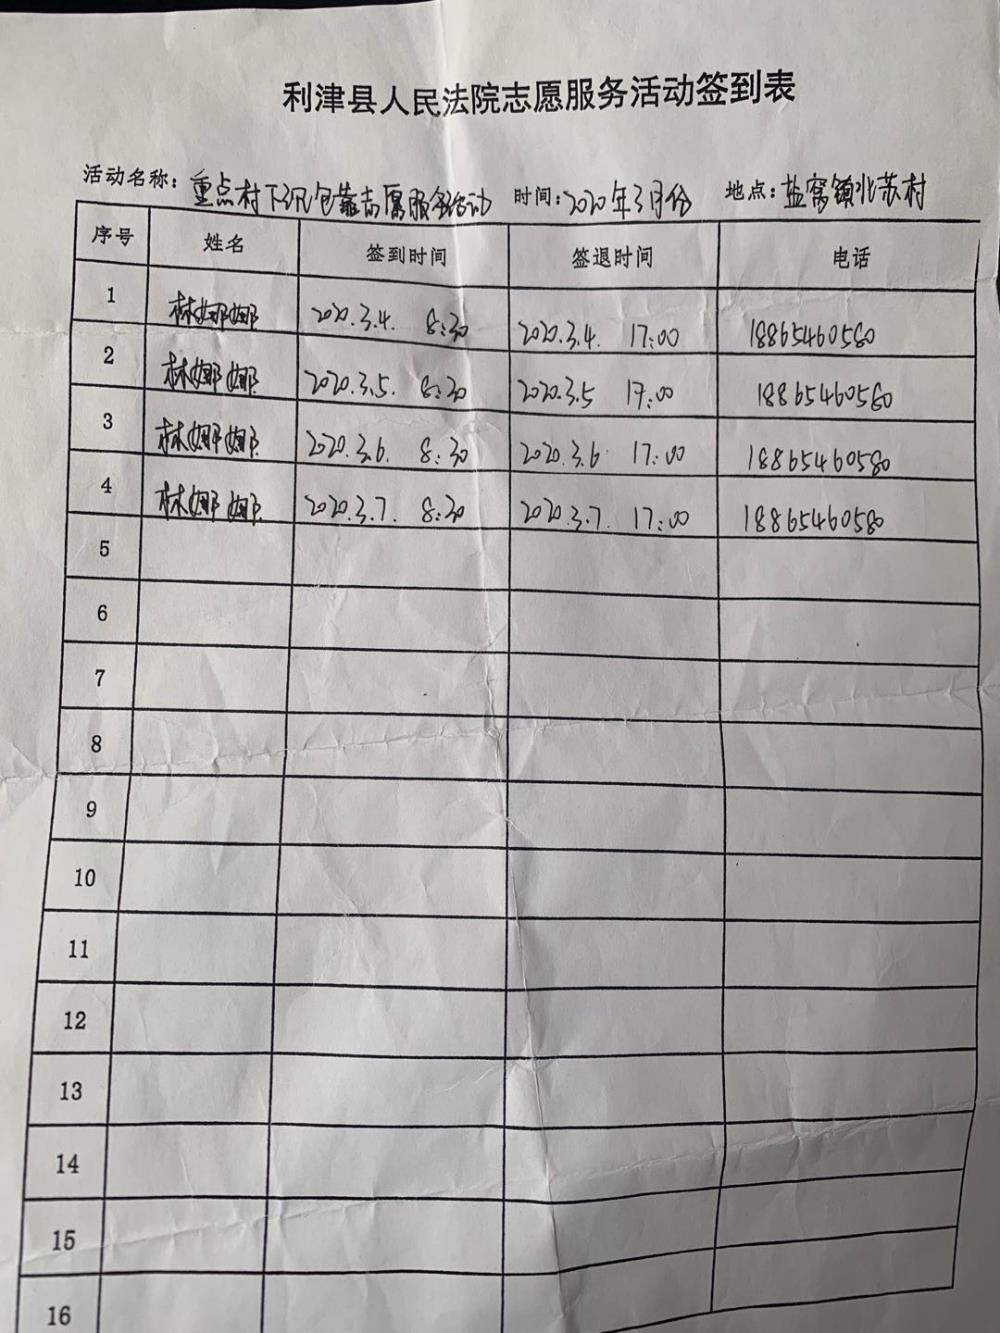 利津县人民法院志愿服务活动签到表
活动名称：重点村下沉包靠志愿服务活动 时间：2020年3月份 地点：盐窝镇北苏村
序号 姓名 签到时间 签退时间 电话
1 林娜娜 2020.3.4. 8:30 2020.3.4. 17:00 18865460580
2 林娜娜 2020.3.5. 8:30 2020.3.5 17:00 18865460580
3 林娜娜 2020.3.6. 8:30 2020.3.6 17:00 18865460580
4 林娜娜 2020.3.7. 8:30 2020.3.7. 17:00 18865460580
5
6
7
8
9
10
11
12
13
14
15
16